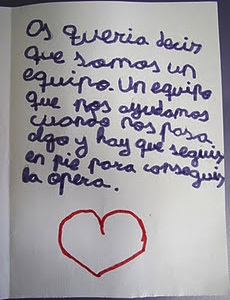 Os queria decir
que somos un
equipo. Un equipo
que nos ayudamos
cuando nos pasa
algo y hay que seguir
en pie para conseguir
la opera.